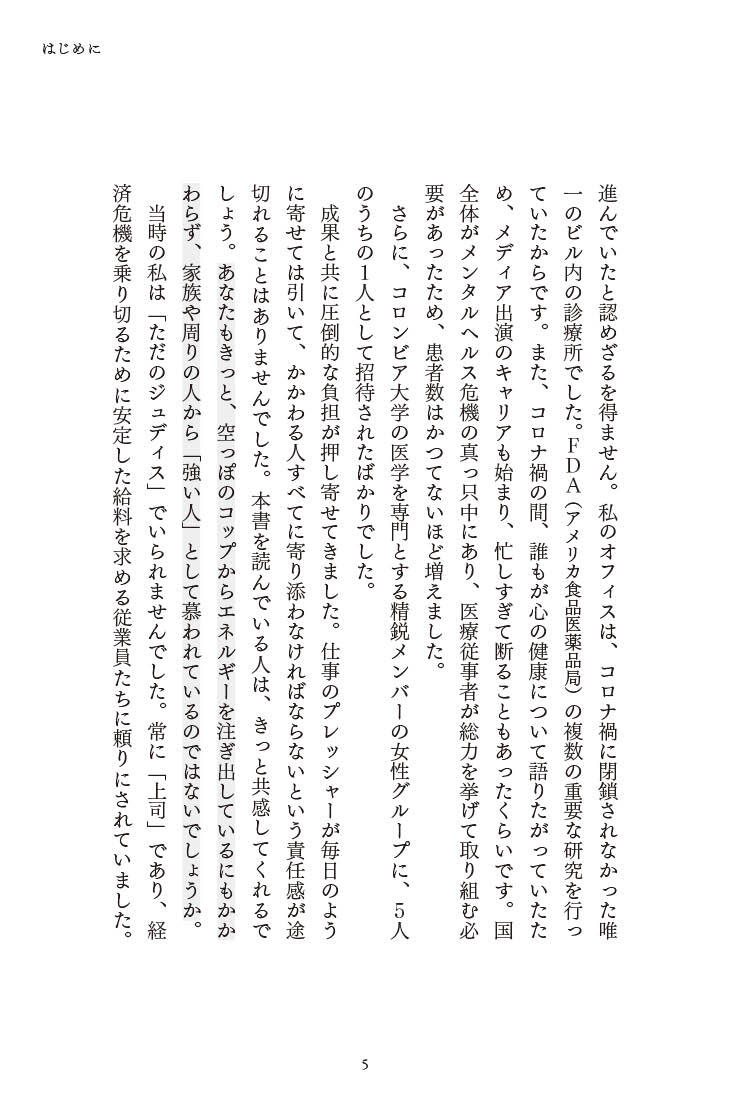 はじめに
進んでいたと認めざるを得ません。私のオフィスは、コロナ禍に閉鎖されなかった唯
一のビル内の診療所でした。FDA（アメリカ食品医薬品局）の複数の重要な研究を行っ
ていたからです。また、コロナ禍の間、誰もが心の健康について語りたがっていたた
め、メディア出演のキャリアも始まり、忙しすぎて断ることもあったくらいです。国
全体がメンタルヘルス危機の真っ只中にあり、医療従事者が総力を挙げて取り組む必
要があったため、患者数はかつてないほど増えました。
さらに、コロンビア大学の医学を専門とする精鋭メンバーの女性グループに、5人
のうちの1人として招待されたばかりでした。
成果と共に圧倒的な負担が押し寄せてきました。仕事のプレッシャーが毎日のよう
に寄せては引いて、かかわる人すべてに寄り添わなければならないという責任感が途
切れることはありませんでした。本書を読んでいる人は、きっと共感してくれるで
しょう。あなたもきっと、空っぽのコップからエネルギーを注ぎ出しているにもかか
わらず、家族や周りの人から「強い人」として慕われているのではないでしょうか。
当時の私は「ただのジュディス」でいられませんでした。常に「上司」であり、経
済危機を乗り切るために安定した給料を求める従業員たちに頼りにされていました。
5